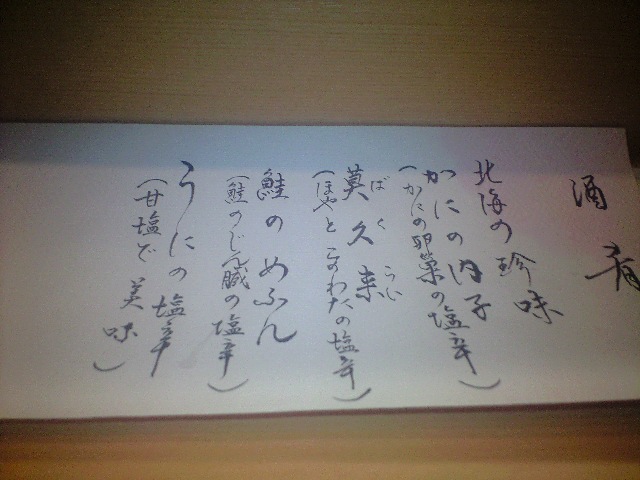 酒肴
北海の珍味
かにの内子
(かにの卵巣の塩辛)
莫久来
ばくらい
(ほやとこのわたの塩辛)
鮭のめふん
(鮭のじん臓の塩辛)
うにの塩辛
(甘塩で美味)